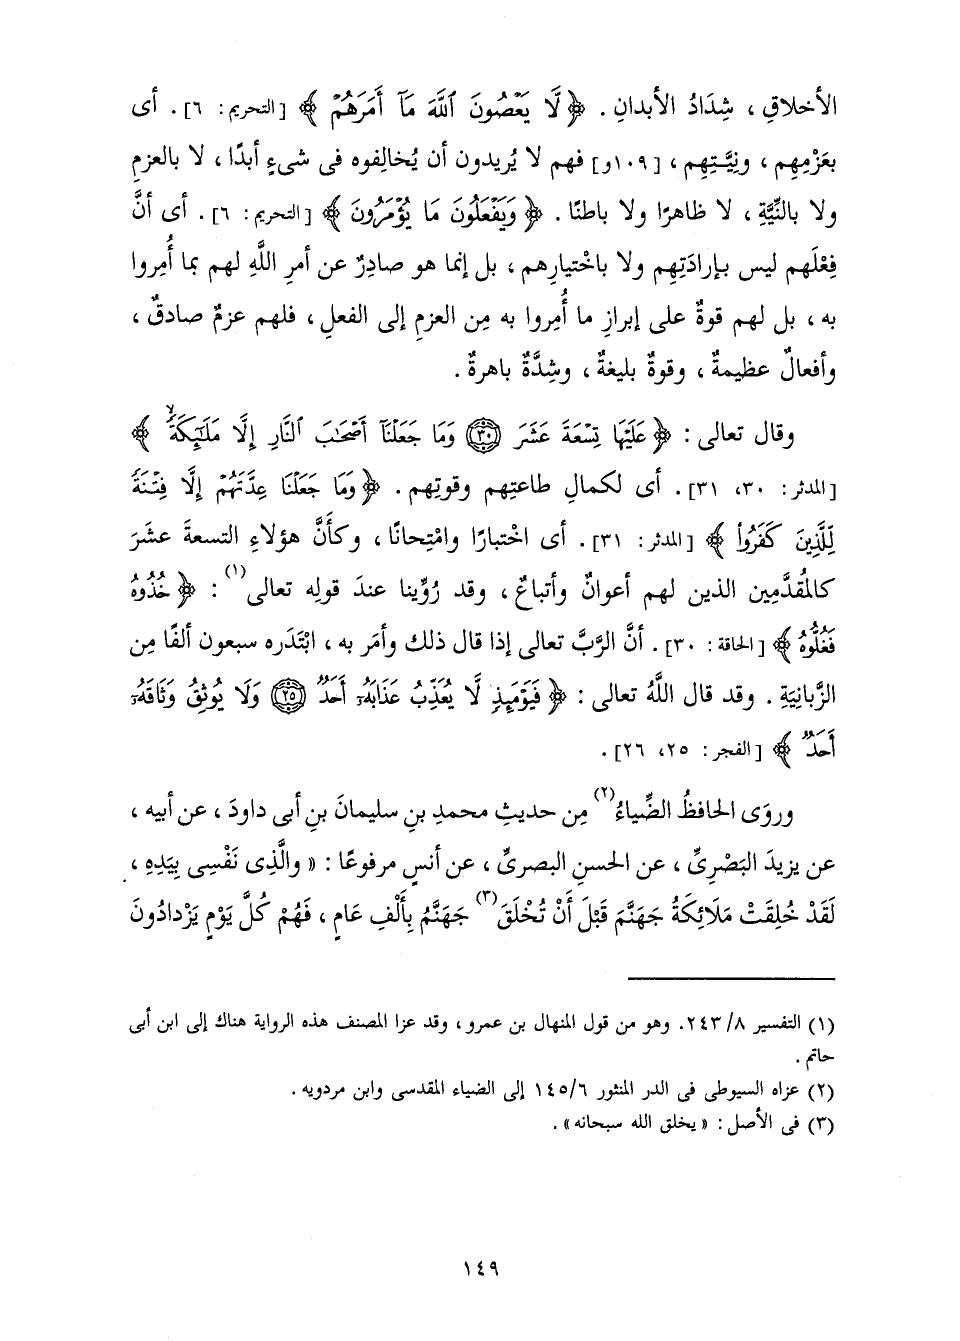 الأخلاقِ ، شِدَادُ الأبدانِ . ﴿ لَّا يَعْصُونَ ٱللَّهَ مَآ أَمَرَهُمْ ﴾ [التحريم: ٦] . أى
بعَزْمِهم ، ونِيَّتِهم ، [١٠٩و] فهم لا يُريدون أن يُخالِفوه فى شىءٍ أبدًا ، لا بالعزمِ
ولا بالنِّيَّةِ ، لا ظاهرًا ولا باطنًا . ﴿ وَيَفْعَلُونَ مَا يُؤْمَرُونَ ﴾ [التحريم: ٦] . أى أنَّ
فِعْلَهم ليس بإرادَتِهم ولا باخْتيارِهم ، بل إنما هو صادِرٌ عن أمرِ اللَّهِ لهم بما أُمِروا
به ، بل لهم قوةٌ على إبرازِ ما أُمِروا به مِن العزمِ إلى الفعلِ ، فلهم عزمٌ صادقٌ ،
وأفعالٌ عظيمةٌ ، وقوةٌ بليغةٌ ، وشِدَّةٌ باهرةٌ .
وقال تعالى : ﴿ عَلَيْهَا تِسْعَةَ عَشَرَ ۝٣٠ وَمَا جَعَلْنَآ أَصْحَٰبَ ٱلنَّارِ إِلَّا مَلَٰٓئِكَةً ۙ ﴾
[المدثر: ٣٠، ٣١] . أى لكمالِ طاعتِهم وقوتِهم . ﴿ وَمَا جَعَلْنَا عِدَّتَهُمْ إِلَّا فِتْنَةً
لِّلَّذِينَ كَفَرُواْ ﴾ [المدثر: ٣١] . أى اختبارًا وامْتِحانًا ، وكأَنَّ هؤلاءِ التسعةَ عشرَ
كالمُقدَّمِين الذين لهم أعوانٌ وأتباعٌ ، وقد رُوِّينا عندَ قولِه تعالى(١) : ﴿ خُذُوهُ
فَغُلُّوهُ ﴾ [الحاقة: ٣٠] . أنَّ الرَّبَّ تعالى إذا قال ذلك وأمَر به ، ابْتَدَره سبعون ألفًا مِن
الزَّبانِيَةِ . وقد قال اللَّهُ تعالى : ﴿ فَيَوْمَئِذٍ لَّا يُعَذِّبُ عَذَابَهُۥٓ أَحَدٌ ۝٢٥ وَلَا يُوثِقُ وَثَاقَهُۥٓ
أَحَدٌ ﴾ [الفجر: ٢٥، ٢٦] .
وروَى الحافظُ الضِّياءُ(٢) مِن حديثِ محمدِ بنِ سليمانَ بنِ أبى داودَ ، عن أبيه ،
عن يزيدَ البَصْرِىِّ ، عن الحسنِ البصرىِّ ، عن أنسٍ مرفوعًا : « والَّذِى نَفْسِى بِيَدِهِ ،
لَقَدْ خُلِقَتْ مَلَائِكَةُ جَهَنَّمَ قَبْلَ أَنْ تُخْلَقَ(٣) جَهَنَّمُ بِأَلْفِ عَامٍ ، فَهُمْ كُلَّ يَوْمٍ يَزْدادُونَ
(١) التفسير ٨/ ٢٤٣. وهو من قول المنهال بن عمرو ، وقد عزا المصنف هذه الرواية هناك إلى ابن أبى
حاتم .
(٢) عزاه السيوطى فى الدر المنثور ٦/ ١٤٥ إلى الضياء المقدسى وابن مردويه .
(٣) فى الأصل : « يخلق الله سبحانه» .
١٤٩